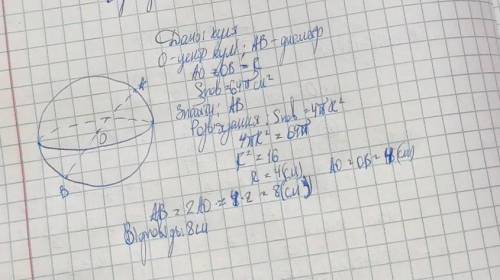 Дано: куля
О-центр кулі; AB-діаметр
AO = OB = R
Sпов = 64π см²
Знайти: AB
Розв'язання: Sпов = 4πR²
4πR² = 64π
R² = 16
R = 4(см) AO = OB = 4(см)
AB = 2AO = 4·2 = 8(см)
Відповідь: 8см
A
O
B